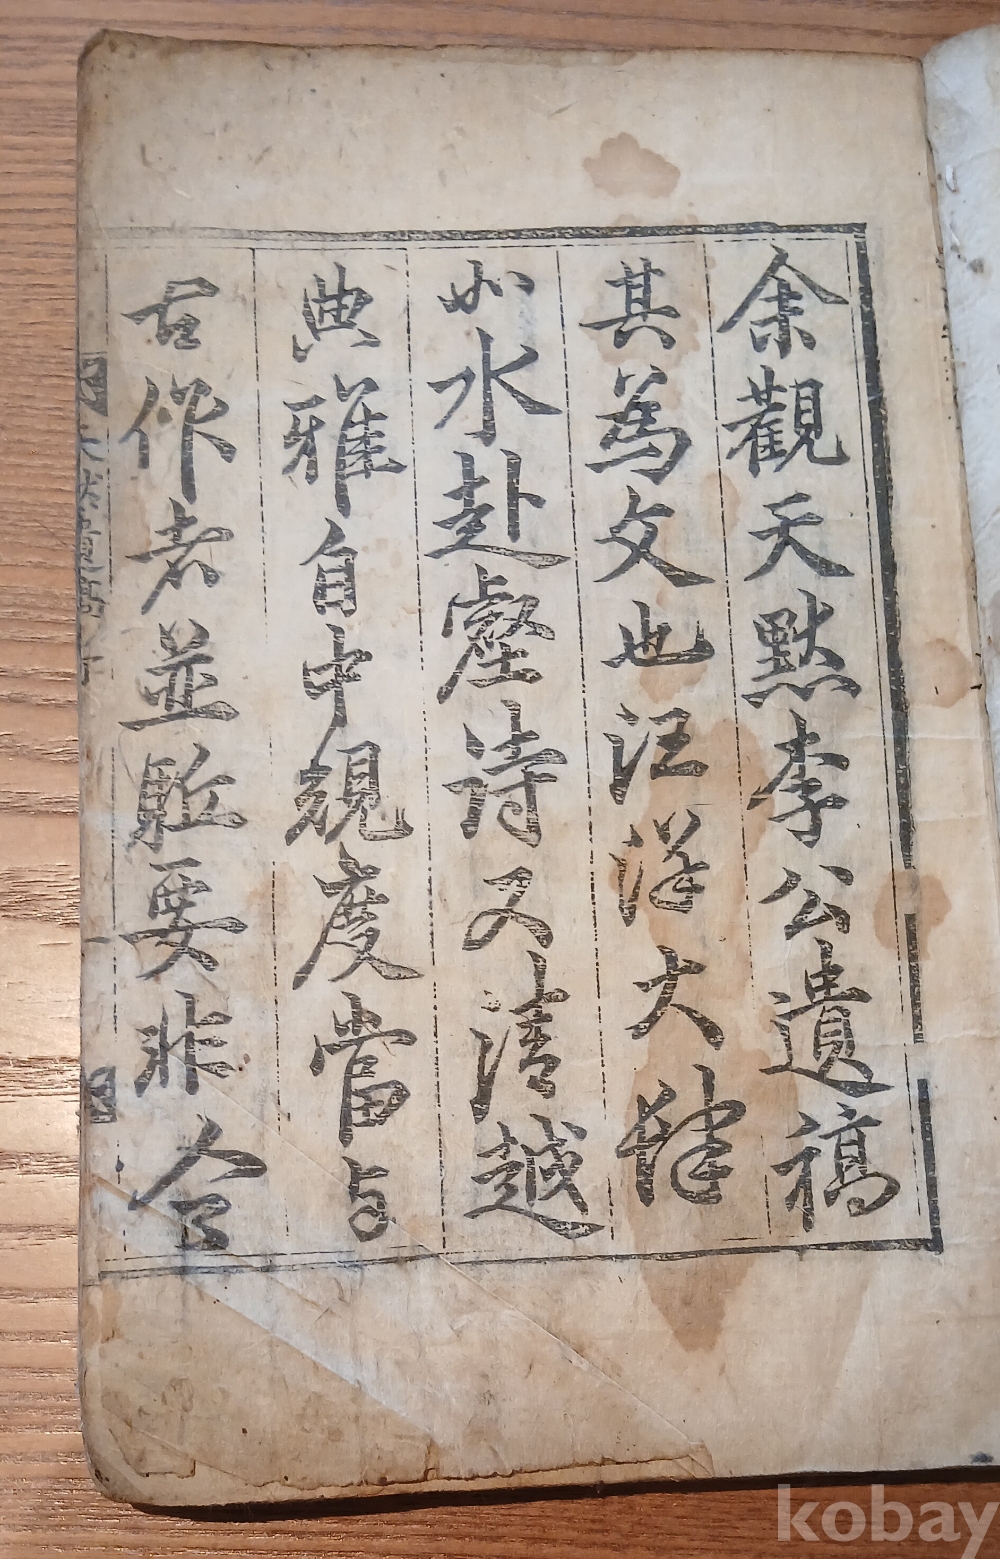 余觀天默李公遺稿
其爲文也汪洋大肆
如水赴壑詩又清越
典雅自中規度當与
古作者並駈要非今
kobay